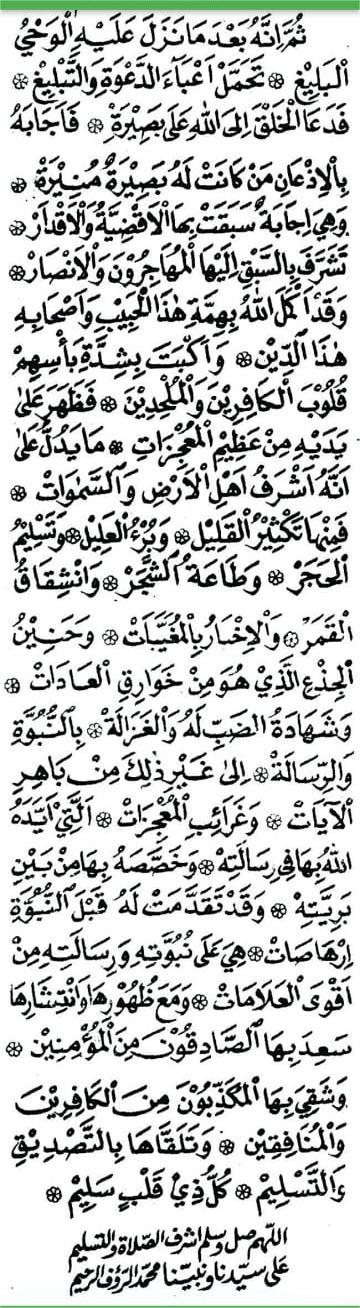 ثُمَّ اِنَّهُ بَعْدَ مَا نَزَلَ عَلَيْهِ الْوَحْيُ
الْبَلِيْغُ ۞ تَحَمَّلَ اَعْبَآءَ الدَّعْوَةِ وَالتَّبْلِيْغِ ۞
فَدَعَا الْخَلْقَ اِلَى اللهِ عَلَى بَصِيْرَةٍ ۞ فَاَجَابَهُ
بِالْاِذْعَانِ مَنْ كَانَتْ لَهُ بَصِيْرَةٌ مُنِيْرَةٌ ۞
وَهِيَ اِجَابَةٌ سَبَقَتْ بِهَا الْاَقْضِيَةُ وَالْاَقْدَارْ ۞
تَشَرَّفَ بِالسَّبْقِ اِلَيْهَا الْمُهَاجِرُوْنَ وَالْاَنْصَارْ ۞
وَقَدْ اَكْمَلَ اللهُ بِهِمَّةِ هٰذَا الْحَبِيْبِ وَاَصْحَابِهِ
هٰذَا الدِّيْنَ ۞ وَاَكْبَتَ بِشِدَّةِ بَأْسِهِمْ
قُلُوْبَ الْكَافِرِيْنَ وَالْمُلْحِدِيْنَ ۞ فَظَهَرَ عَلَى
يَدَيْهِ مِنْ عَظِيْمِ الْمُعْجِزَاتِ ۞ مَا يَدُلُّ عَلَى
اَنَّهُ اَشْرَفُ اَهْلِ الْاَرْضِ وَالسَّمٰوَاتْ ۞
فَمِنْهَا تَكْثِيْرُ الْقَلِيْلْ ۞ وَبُرْءُ الْعَلِيْلْ ۞ وَتَسْلِيْمُ
الْحَجَرْ ۞ وَطَاعَةُ الشَّجَرْ ۞ وَانْشِقَاقُ
الْقَمَرْ ۞ وَالْاِخْبَارُ بِالْمُغَيَّبَاتْ ۞ وَحَنِيْنُ
الْجِذْعِ الَّذِيْ هُوَ مِنْ خَوَارِقِ الْعَادَاتْ ۞
وَشَهَادَةُ الضَّبِّ لَهُ وَالْغَزَالَةْ ۞ بِالنُّبُوَّةِ
وَالرِّسَالَةْ ۞ اِلَى غَيْرِ ذٰلِكَ مِنْ بَاهِرِ
الْاٰيَاتْ ۞ وَغَرَائِبِ الْمُعْجِزَاتْ ۞ الَّتِيْ اَيَّدَهُ
اللهُ بِهَا فِيْ رِسَالَتِهْ ۞ وَخَصَّصَهُ بِهَا مِنْ بَيْنِ
بَرِيَّتِهْ ۞ وَقَدْ تَقَدَّمَتْ لَهُ قَبْلَ النُّبُوَّةِ
اِرْهَاصَاتْ ۞ هِيَ عَلَى نُبُوَّتِهِ وَرِسَالَتِهِ مِنْ
اَقْوَى الْعَلَامَاتْ ۞ وَمَعَ ظُهُوْرِهَا وَانْتِشَارِهَا
سَعِدَ بِهَا الصَّادِقُوْنَ مِنَ الْمُؤْمِنِيْنَ ۞
وَشَقِيَ بِهَا الْمُكَذِّبُوْنَ مِنَ الْكَافِرِيْنَ
وَالْمُنَافِقِيْنَ ۞ وَتَلَقَّاهَا بِالتَّصْدِيْقِ
وَالتَّسْلِيْمْ ۞ كُلُّ ذِيْ قَلْبٍ سَلِيْمْ ۞
اللهم صل وسلم اشرف الصلاة والتسليم
على سيدنا ونبينا محمد الرؤف الرحيم